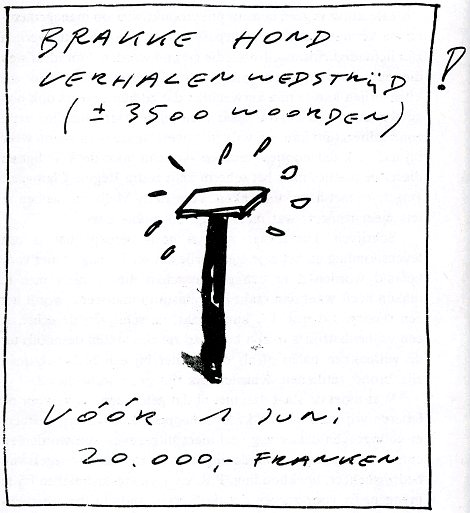 BRAKKE HOND
VERHALENWEDSTRIJD!
(± 3500 WOORDEN)
VÓÓR 1 JUNI
20.000,- FRANKEN